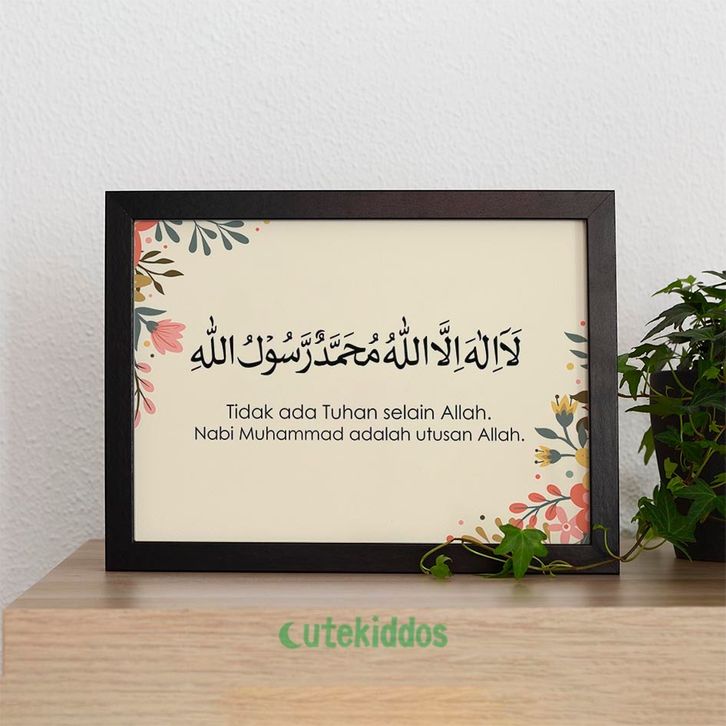 لَآ اِلٰهَ اِلَّا اللهُ مُحَمَّدٌ رَّسُوْلُ اللهِ
Tidak ada Tuhan selain Allah.
Nabi Muhammad adalah utusan Allah.
Cutekiddos